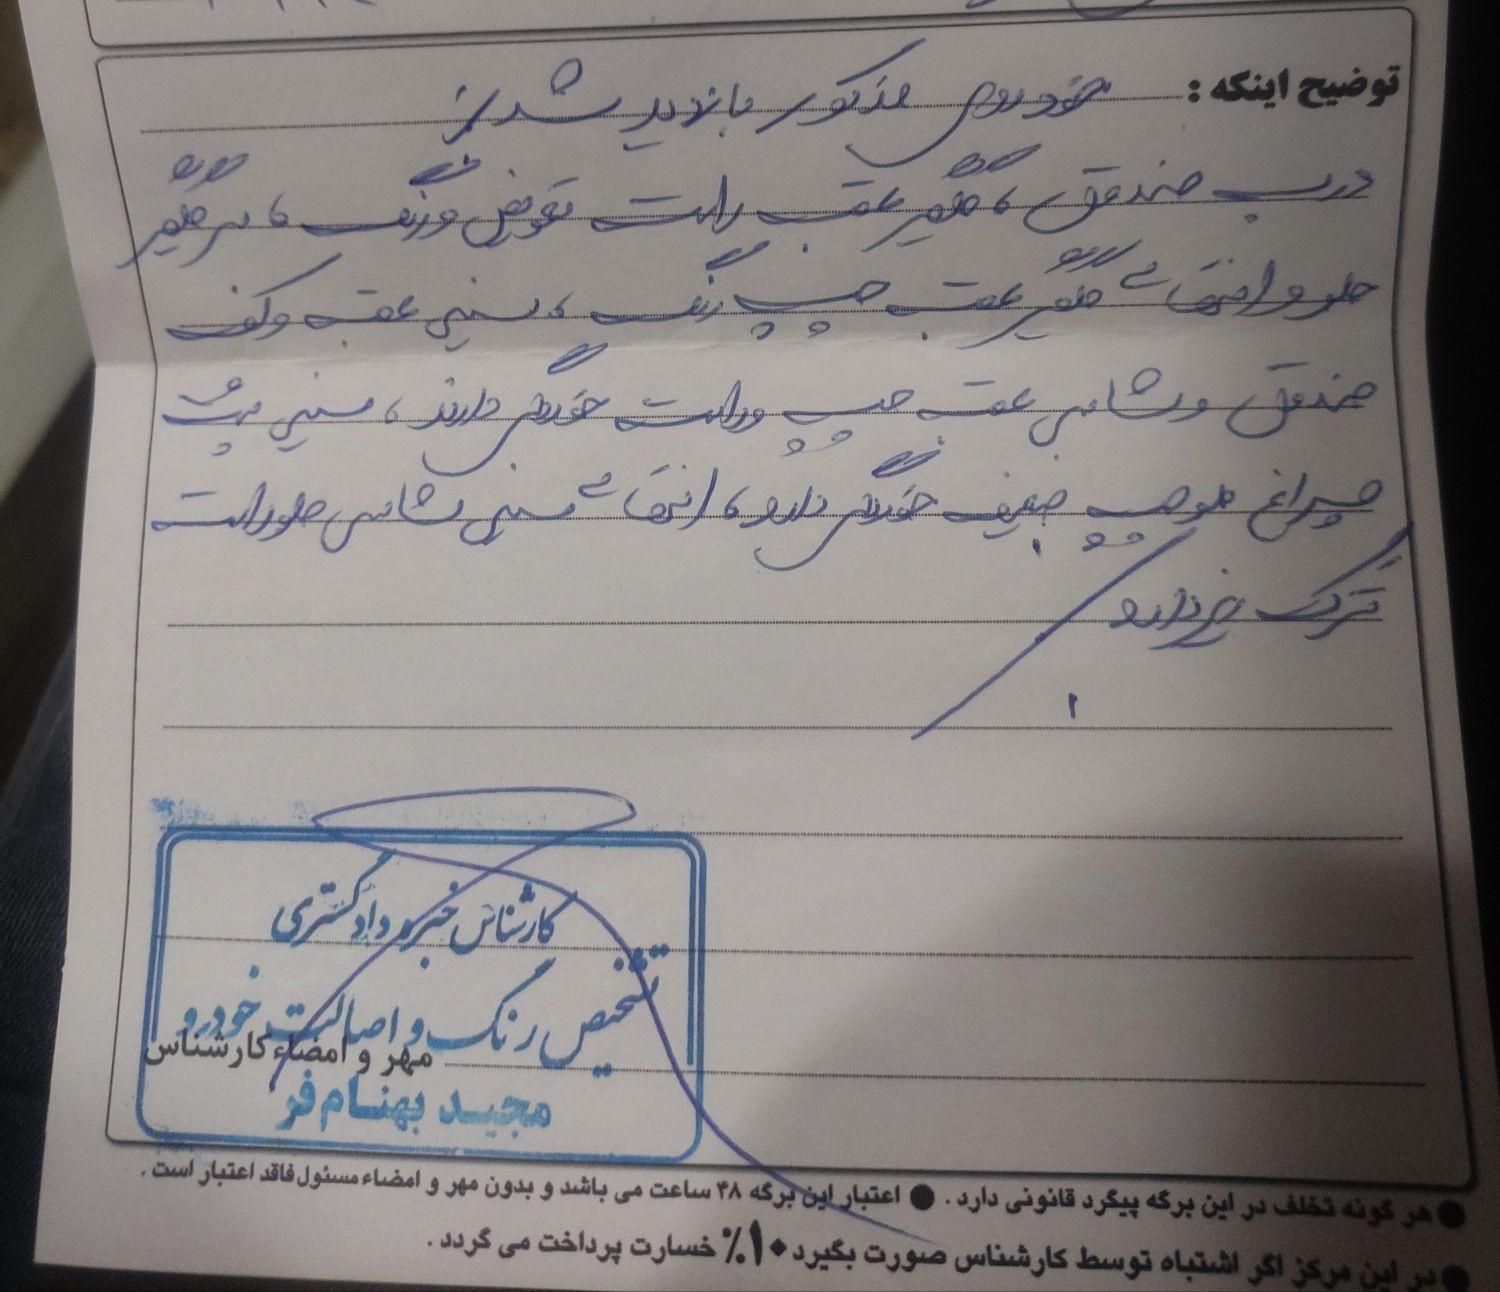 توضیح اینکه : خودروی مذکور بازدید شد:
درب صندوق ، گلگیر عقب راست تعویض و رنگ ، سر گلگیر
جلو و انتهای گلگیر عقب چپ رنگ ، سینی عقب و کف
صندوق و شاسی عقب چپ و راست خوردگی دارند ، سینی پشت
چراغ جلو چپ ضعیف خوردگی دارد ، انتهای سینی شاسی جلو راست
ترک ریز دارد
کارشناس خبره دادگستری
تشخیص رنگ و اصالت خودرو
مهر و امضاء کارشناس
مجید بهنام فر
● هر گونه تخلف در این برگه پیگرد قانونی دارد . ● اعتبار این برگه ۴۸ ساعت می باشد و بدون مهر و امضاء مسئول فاقد اعتبار است .
● در این مرکز اگر اشتباه توسط کارشناس صورت بگیرد ۱۰٪ خسارت پرداخت می گردد .